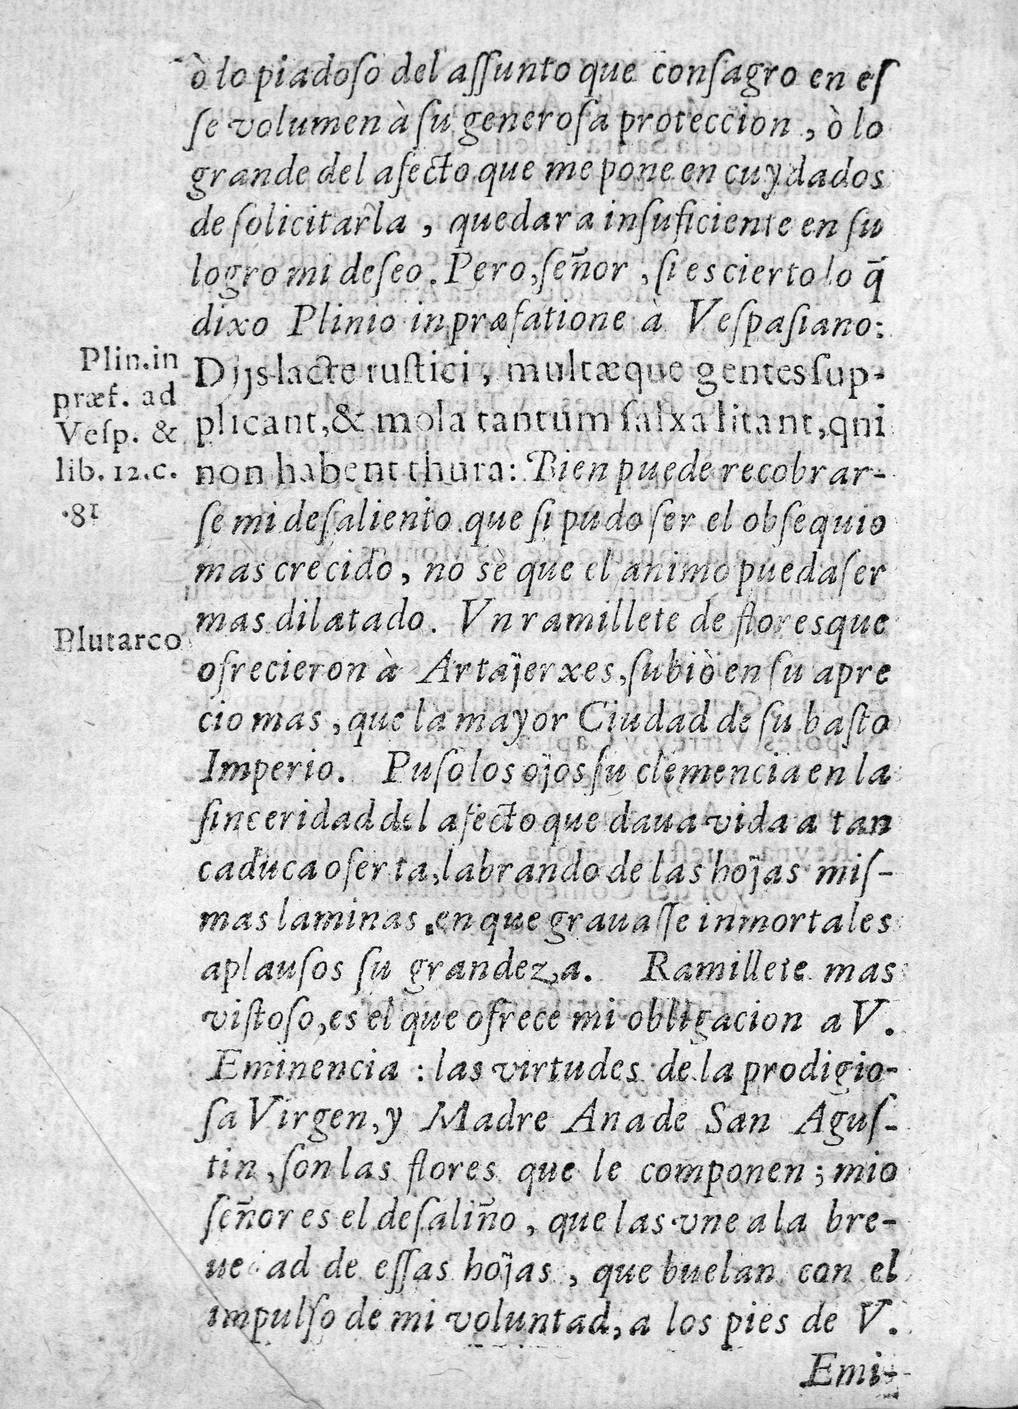 ò lo piadoſo del aſſunto que conſagro en eſ
ſe volumen à ſu generoſa proteccion, ò lo
grande del afecto que me pone en cuydados
de ſolicitarla, quedara inſuficiente en ſu
logro mi deſeo. Pero, ſeñor, ſi es cierto lo q̄
dixo Plinio in præfatione à Veſpaſiano:
Plin. in
præf. ad
Veſp. &
lib. 12. c.
.81
Dijs lacte ruſtici, multæque gentes ſup-
plicant, & mola tantum ſalxa litant, qni
non habent thura: Bien puede recobrar-
ſe mi deſaliento que ſi pudo ſer el obſequio
mas crecido, no sè que el animo pueda ſer
mas dilatado. Vn ramillete de flores que
Plutarco
ofrecieron à Artajerxes, ſubiò en ſu apre
cio mas, que la mayor Ciudad de ſu baſto
Imperio. Puſo los ojos ſu clemencia en la
ſinceridad del afecto que daua vida a tan
caduca oferta, labrando de las hojas miſ-
mas laminas, en que grauaſſe inmortales
aplauſos ſu grandeza. Ramillete mas
viſtoſo, es el que ofrece mi obligacion a V.
Eminencia: las virtudes de la prodigio-
ſa Virgen, y Madre Ana de San Aguſ-
tin, ſon las flores que le componen; mio
ſeñor es el deſaliño, que las vne a la bre-
ue ad de eſſas hojas, que buelan con el
impulſo de mi voluntad, a los pies de V.
Emi-